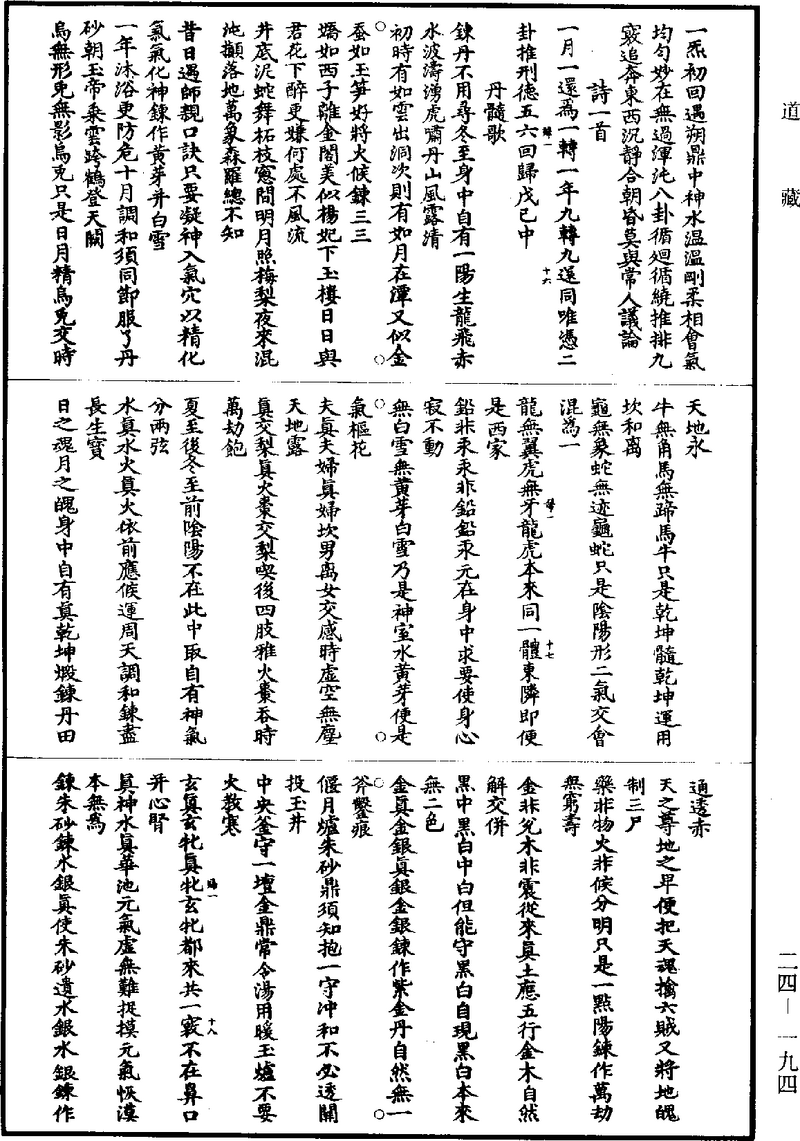 道藏
一炁初回遇朔鼎中神水温溫剛柔相會氣
均勻妙在無過渾沌八卦循廻循繞推排九
竅追奔東西沉靜合朝昏莫與常人議論
詩一首
一月一還為一轉一年九轉九還同唯憑二
卦推刑德五六回歸戊己中
丹髓歌
鍊丹不用尋冬至身中自有一陽生龍飛赤
水波濤湧虎嘯丹山風露清
初時有如雲出洞次則有如月在潭又似金
蚕如玉笋好將火候鍊三三
嬌如西子離金閣美似楊妃下玉樓日日與
君花下醉更嫌何處不風流
井底泥蛇舞柘枝窓間明月照梅梨夜來混
沌攧落地萬象森羅總不知
昔日遇師親口訣只要凝神入氣穴以精化
氣氣化神鍊作黃芽并白雪
一年沐浴更防危十月調和須同節服了丹
砂朝玉帝乘雲跨鶴登天闕
烏無形兎無影烏兎只是日月精烏兎交時
天地永
牛無角馬無蹄馬牛只是乾坤髓乾坤運用
坎和离
龜無象蛇無迹龜蛇只是陰陽形二氣交會
混為一
龍無翼虎無牙龍虎本來同一體東隣即便
是西家
鉛非汞汞非鉛鉛汞元在身中求要使身心
寂不動
無白雪無黃芽白雪乃是神室水黃芽便是
氣樞花
夫真夫婦真婦坎男离女交感時虛空無塵
天地露
真交梨真火棗交梨喫後四肢雅火棗吞時
萬劫飽
夏至後冬至前陰陽不在此中取自有神氣
分兩弦
水真水火真火依前應候運周天調和鍊盡
長生寶
日之魂月之魄身中自有真乾坤煅鍊丹田
通透赤
天之尊地之卑便把天魂擒六賊又將地魄
制三尸
藥非物火非候分明只是一點陽鍊作萬劫
無窮壽
金非兌木非震從來真土應五行金木自然
解交併
黑中黑白中白但能守黑白自現黑白本來
無二色
金真金銀真銀金銀鍊作紫金丹自然無一
斧鑿痕
偃月爐朱砂鼎須知抱一守冲和不必透關
投玉井
中央釜守一壇金鼎常令湯用暖玉爐不要
火教寒
玄真玄牝真牝玄牝都來共一竅不在鼻口
并心腎
真神水真華池元氣虛無難捉摸元氣恢漠
本無為
鍊朱砂鍊水銀真使朱砂遺水銀水銀鍊作
十六
十七
十八
二四—一九四